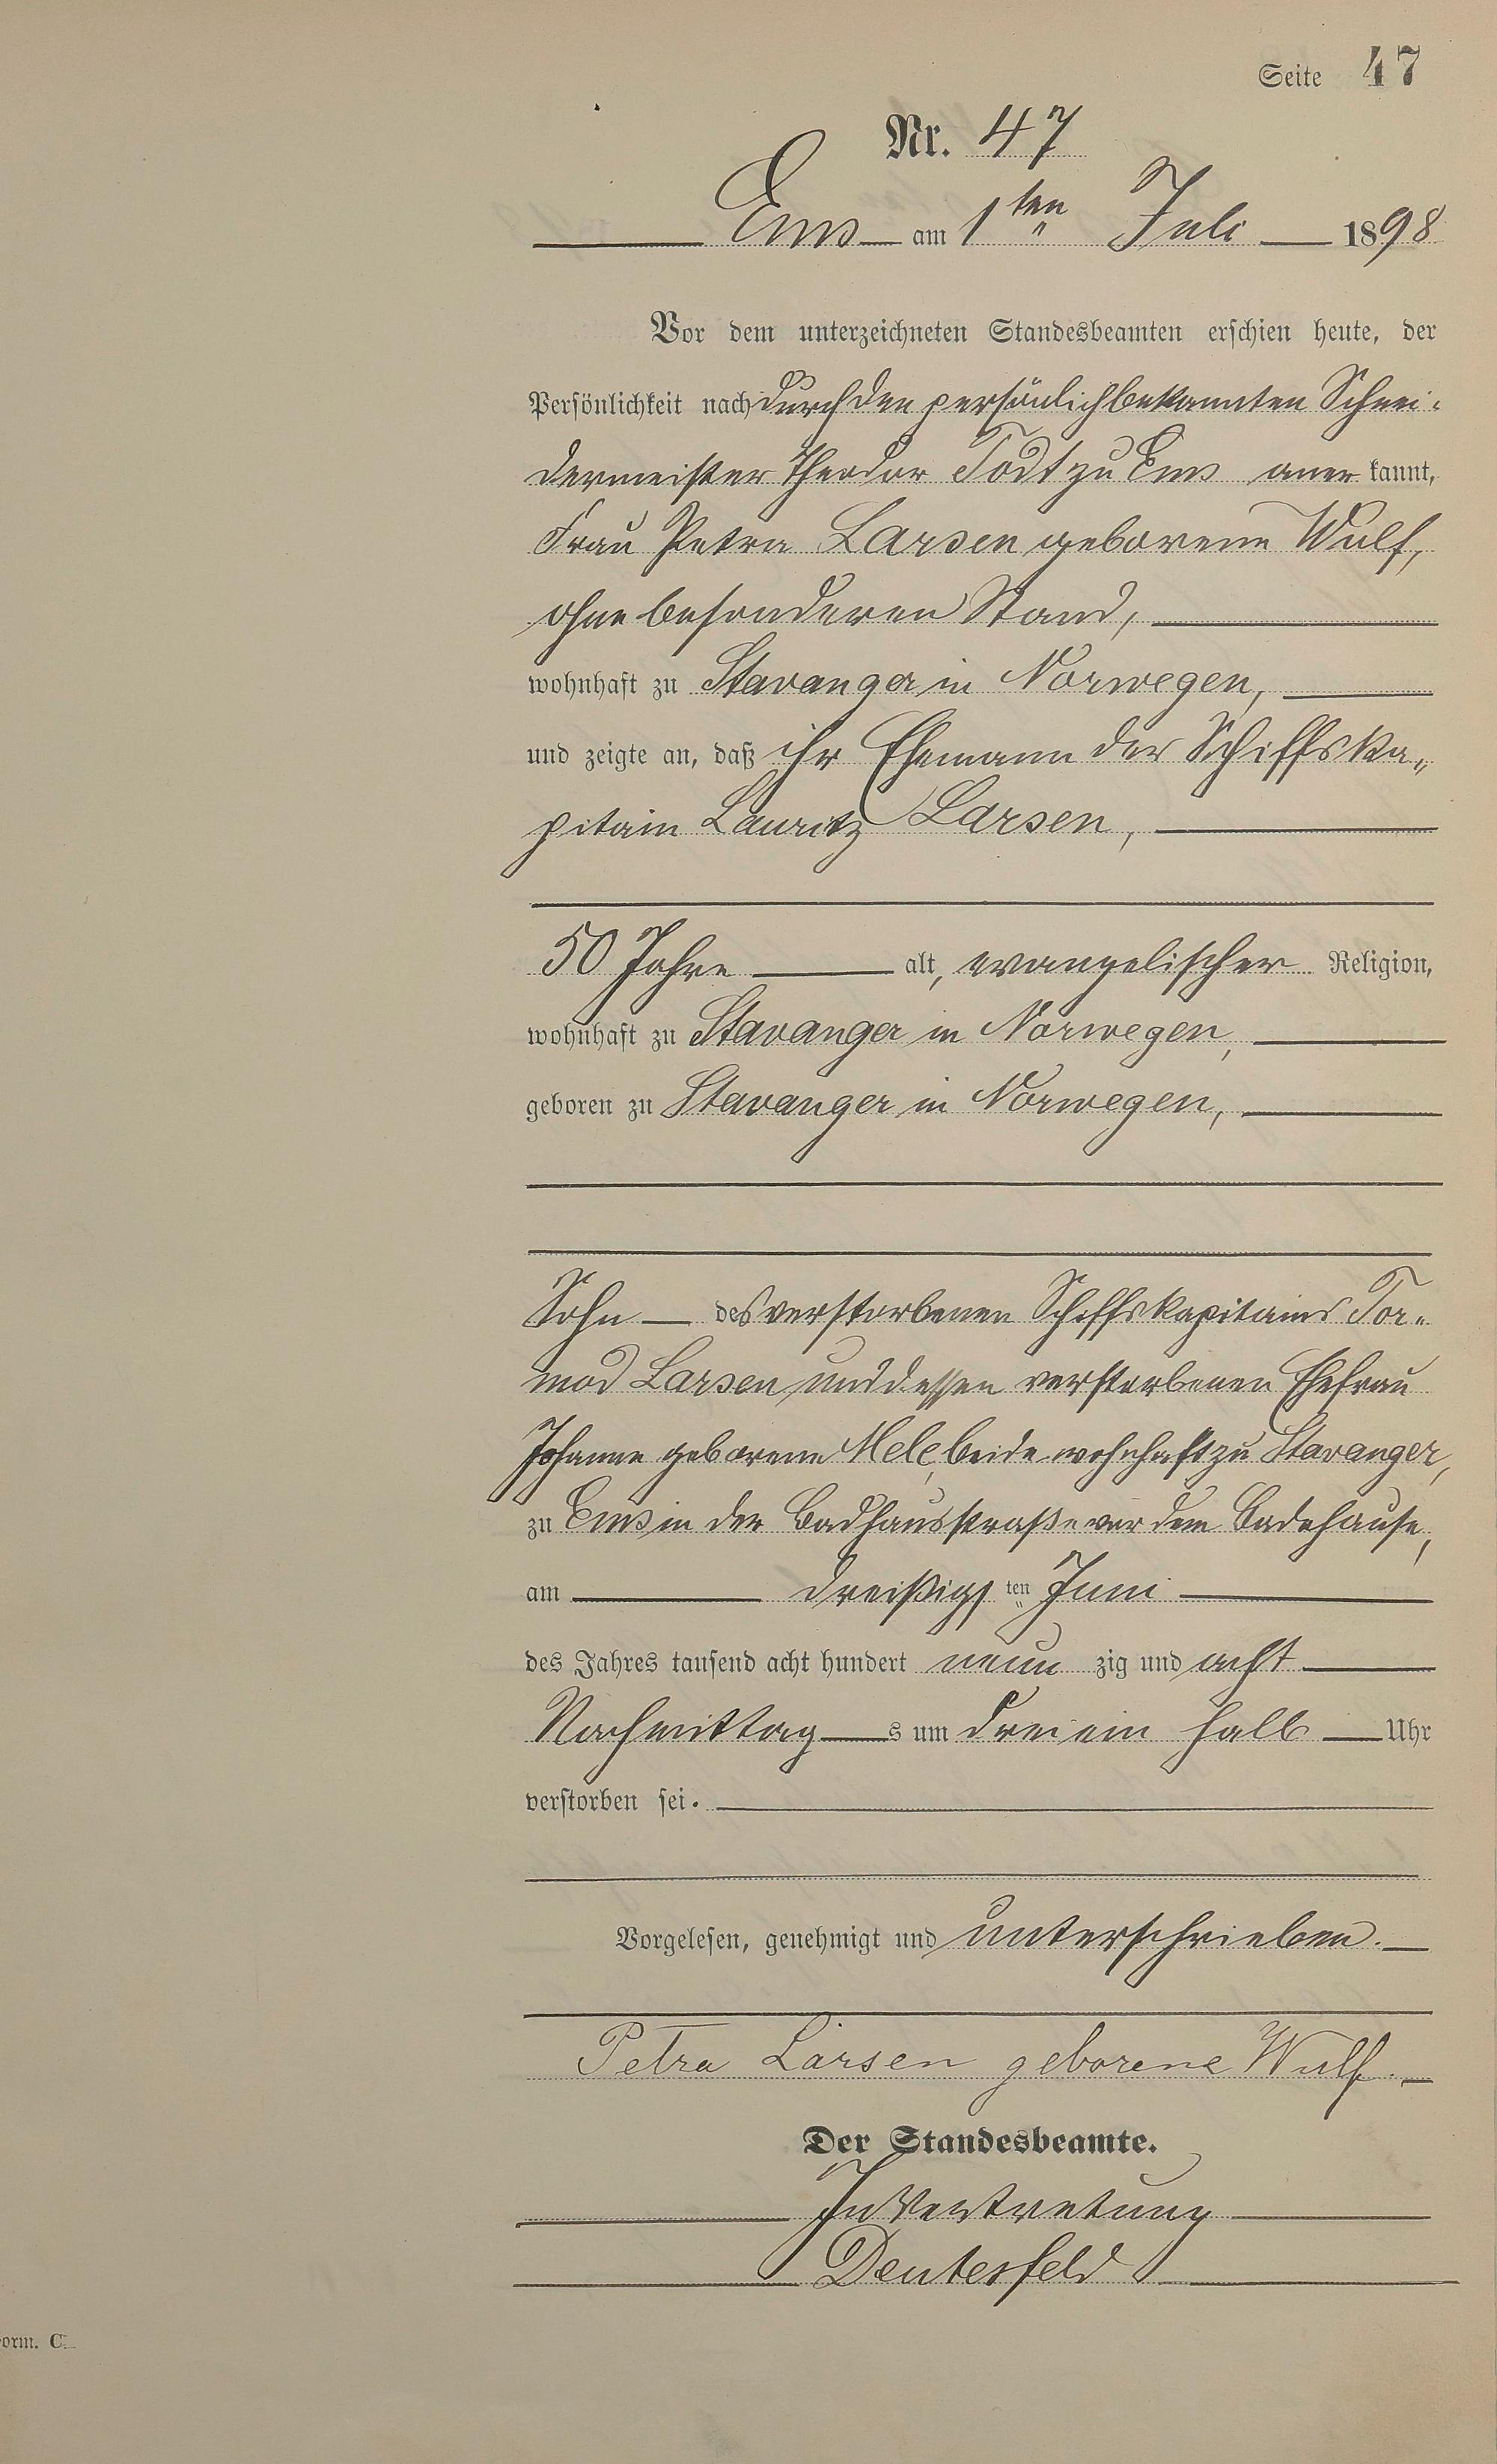 Seite 47
Nr. 47
Ems am 1ten Juli 1898
Vor dem unterzeichneten Standesbeamten erschien heute, der
Persönlichkeit nach durch den persönlich bekannten Schnei-
dermeister Theodor Todt zu Ems aner kannt,
Frau Petra Larsen geborene Wulf,
ohne besonderen Stand,
wohnhaft zu Stavanger in Norwegen,
und zeigte an, daß ihr Ehemann der Schiffska-
pitain Lauritz Larsen,
50 Jahre alt, evangelischer Religion,
wohnhaft zu Stavanger in Norwegen,
geboren zu Stavanger in Norwegen,
Sohn des verstorbenen Schiffskapitains Tor-
mod Larsen und dessen verstorbenen Ehefrau
Johanne geborene Mele, beide wohnhaft zu Stavanger,
zu Ems in der Badhausstraße vor dem Badehause,
am dreißigsten Juni
des Jahres tausend acht hundert neun zig und acht
Nachmittags um drei ein halb Uhr
verstorben sei.
Vorgelesen, genehmigt und unterschrieben.
Petra Larsen geborene Wulf.
Der Standesbeamte.
In Vertretung
Deutesfeld
orm. C.